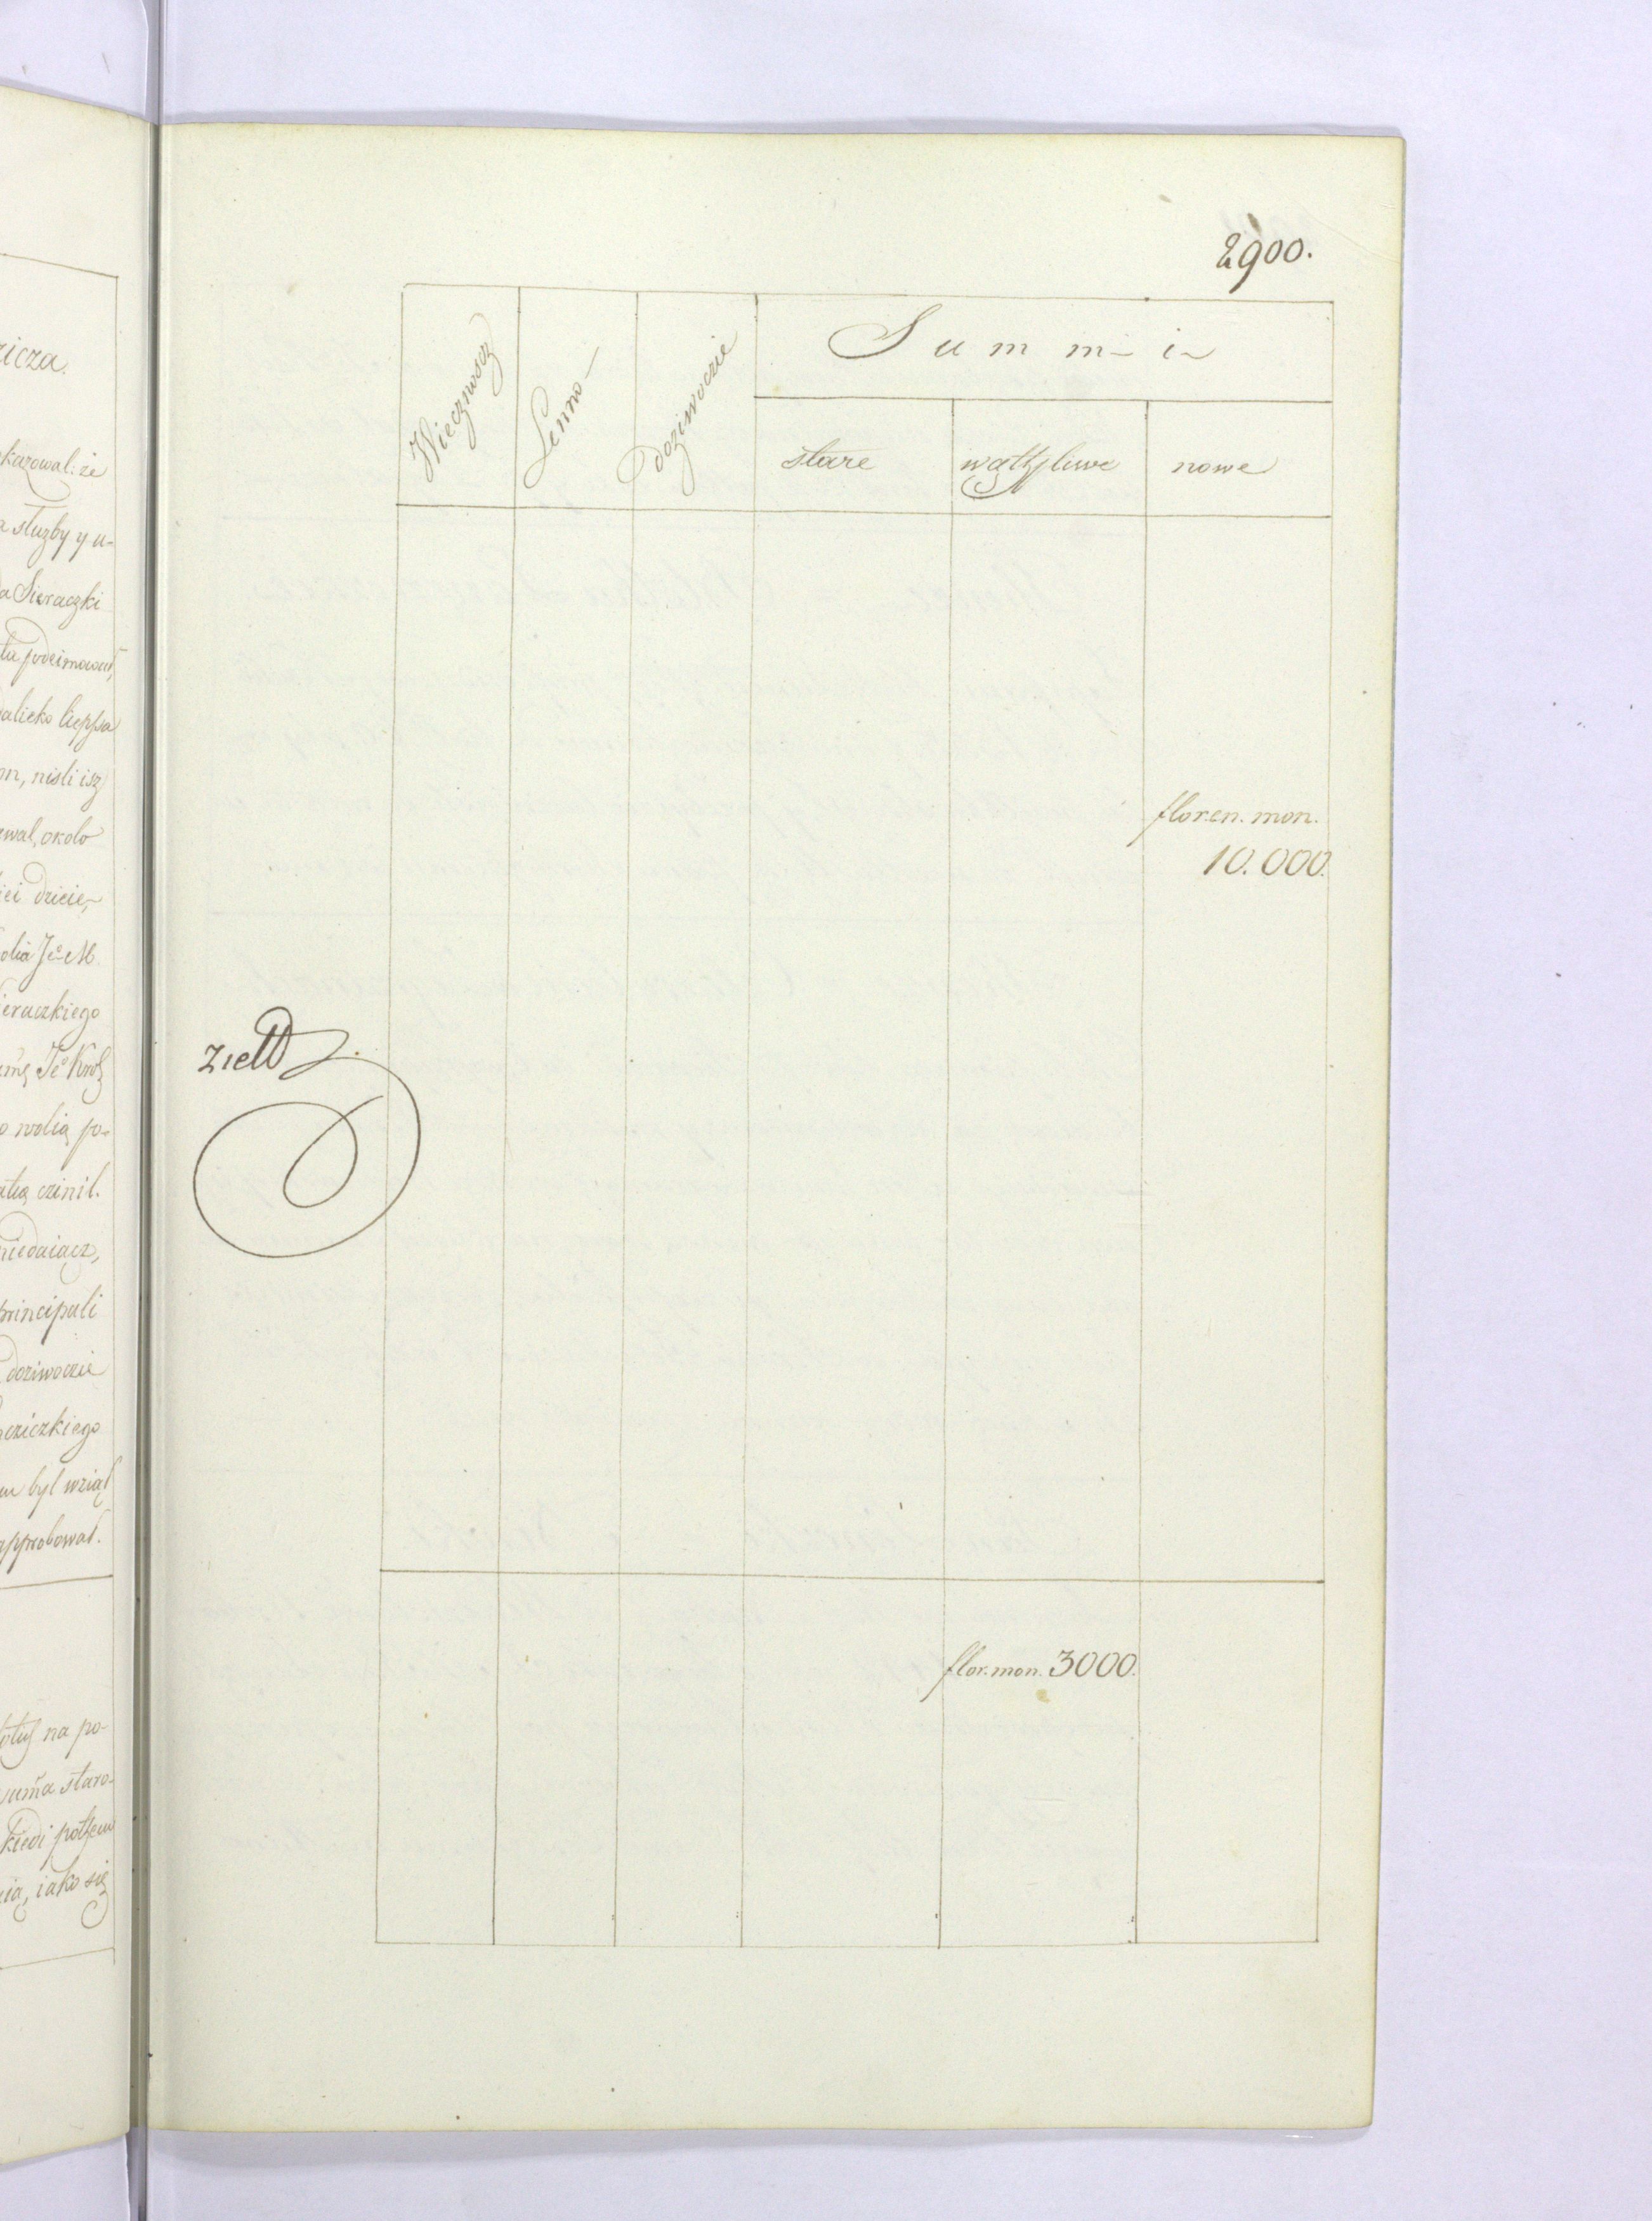 icza.
karowal: ze
a służby y u-
a Sieraczki
tu podeimował,
alieko liepsza
m, nisli isz
wal, około
iei dzicie,
olia Je M
ieraczkiego
Je Krol
o wolią po-
atią czinil.
niedaiącz,
principali
doziwoczie
cziczkiego
m był wziął
approbował.
na po-
sum̃a staro-
kiedi potem
ią, iako się
2900.
Wiecznoscz
Lenno
doziwoczie
Summ-i
stare
wątpliwe
nowe
floren. mon.
10.000.
flor. mon. 3000.